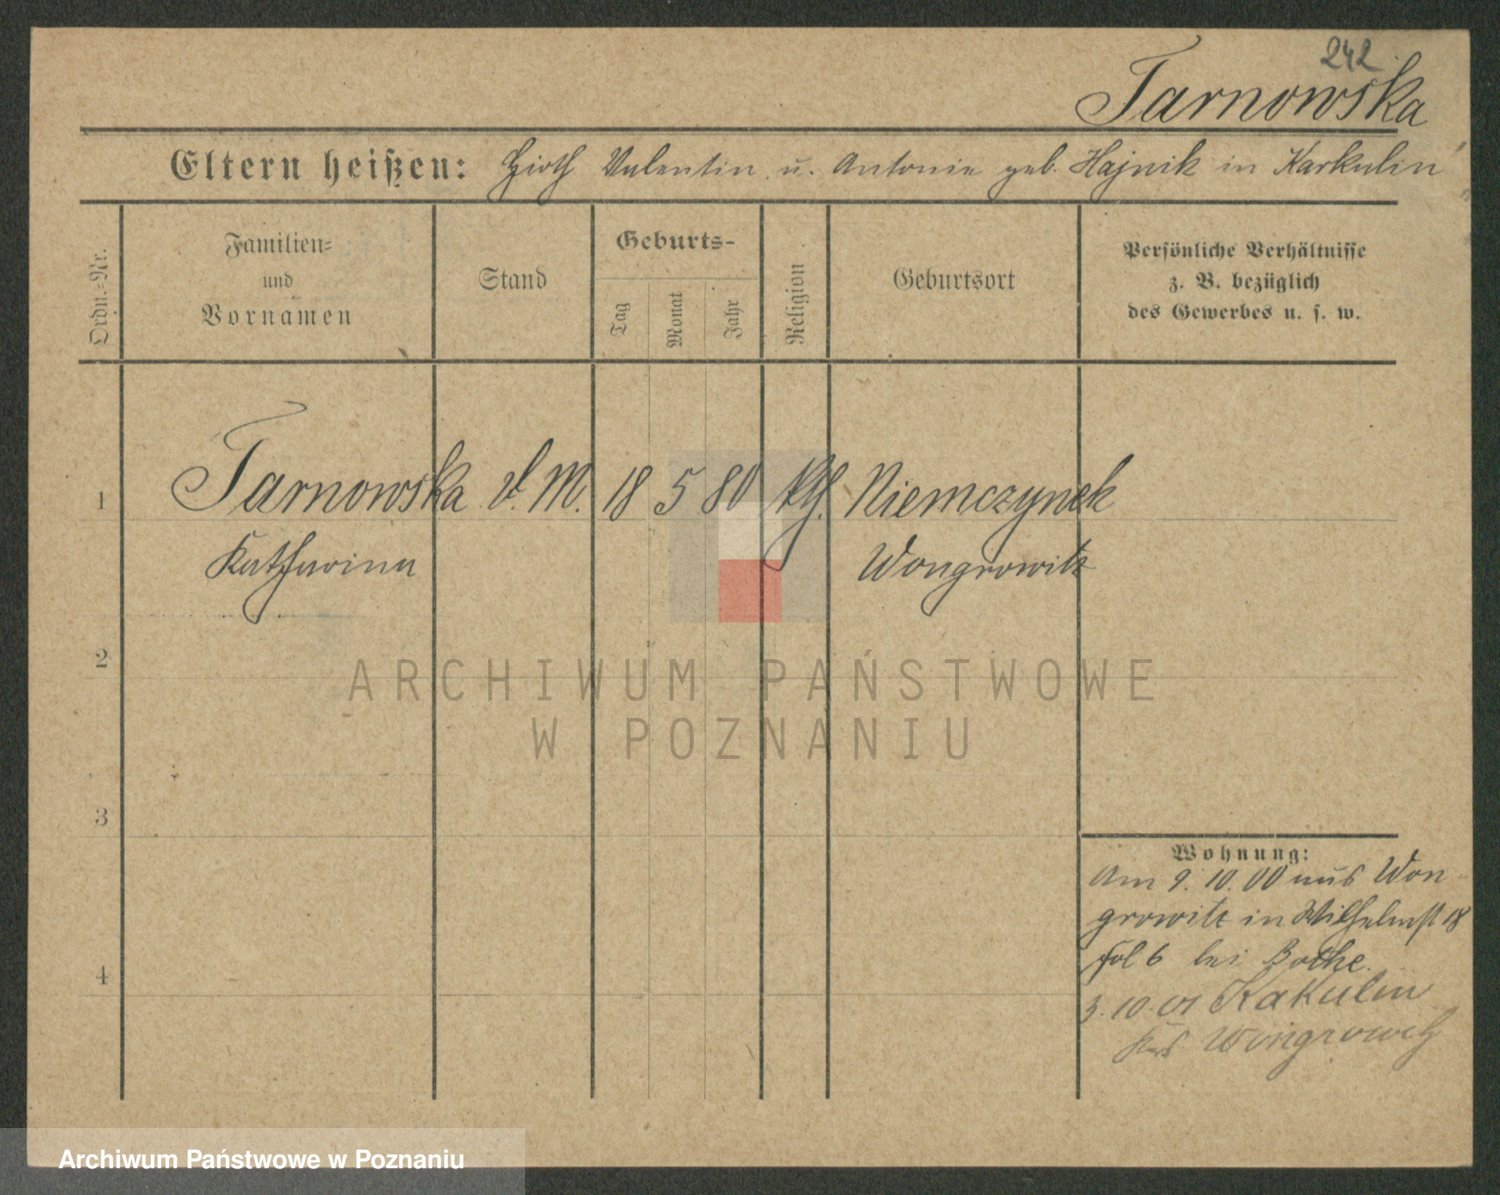 242
Tarnowska
Eltern heißen: Hirth Valentin u. Antonie geb. Hajnik in Karkulin
Ordn.-Nr.
Familien-
und
Vornamen
Stand
Geburts-
Tag
Monat
Jahr
Religion
Geburtsort
Persönliche Verhältnisse
z. B. bezüglich
des Gewerbes u. s. w.
1 Tarnowska d. M. 18 5 80 kth. Niemczynek
Katharina Wongrowitz
2
3
4
Wohnung:
Am 9. 10. 00 aus Won-
growitz in Wilhelmst 18
fol 6 bei Bothe.
3. 10. 01 Kakulin
Krs Wongrowitz
ARCHIWUM PAŃSTWOWE
W POZNANIU
Archiwum Państwowe w Poznaniu